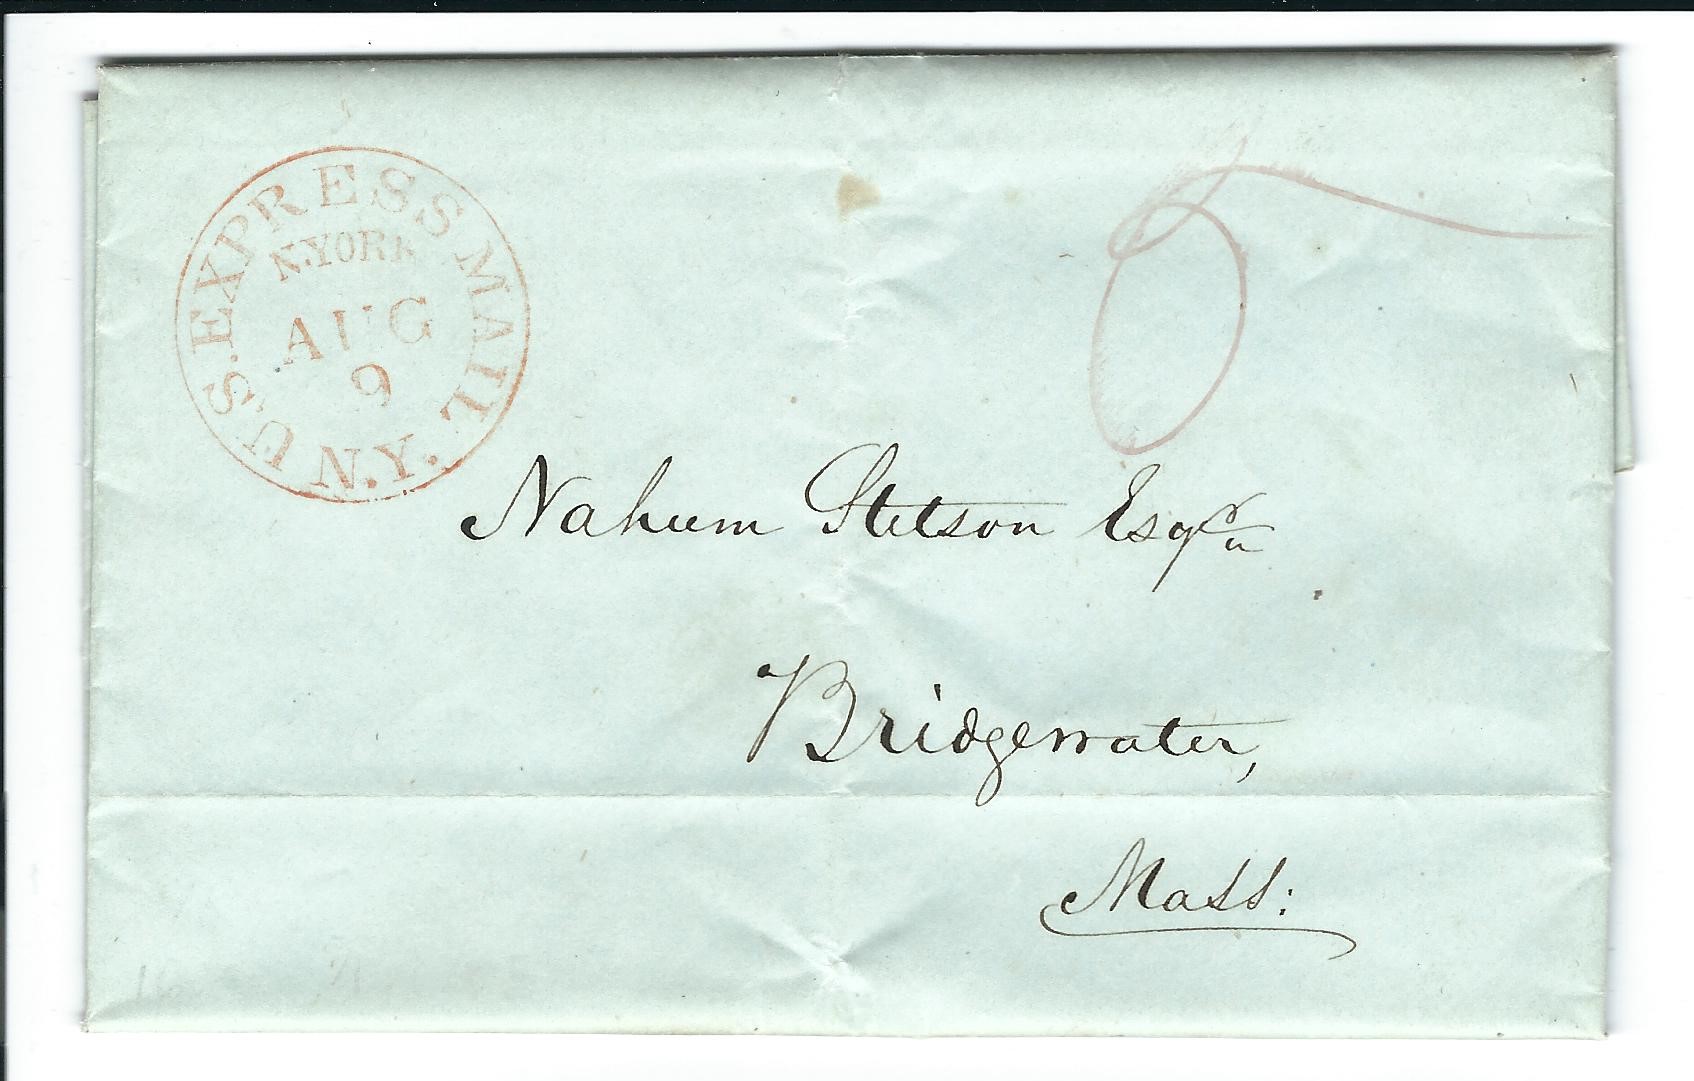 U.S. EXPRESS MAIL
N.YORK
AUG
9
N.Y.
Nahum Stetson Esqr
Bridgewater,
Mass: